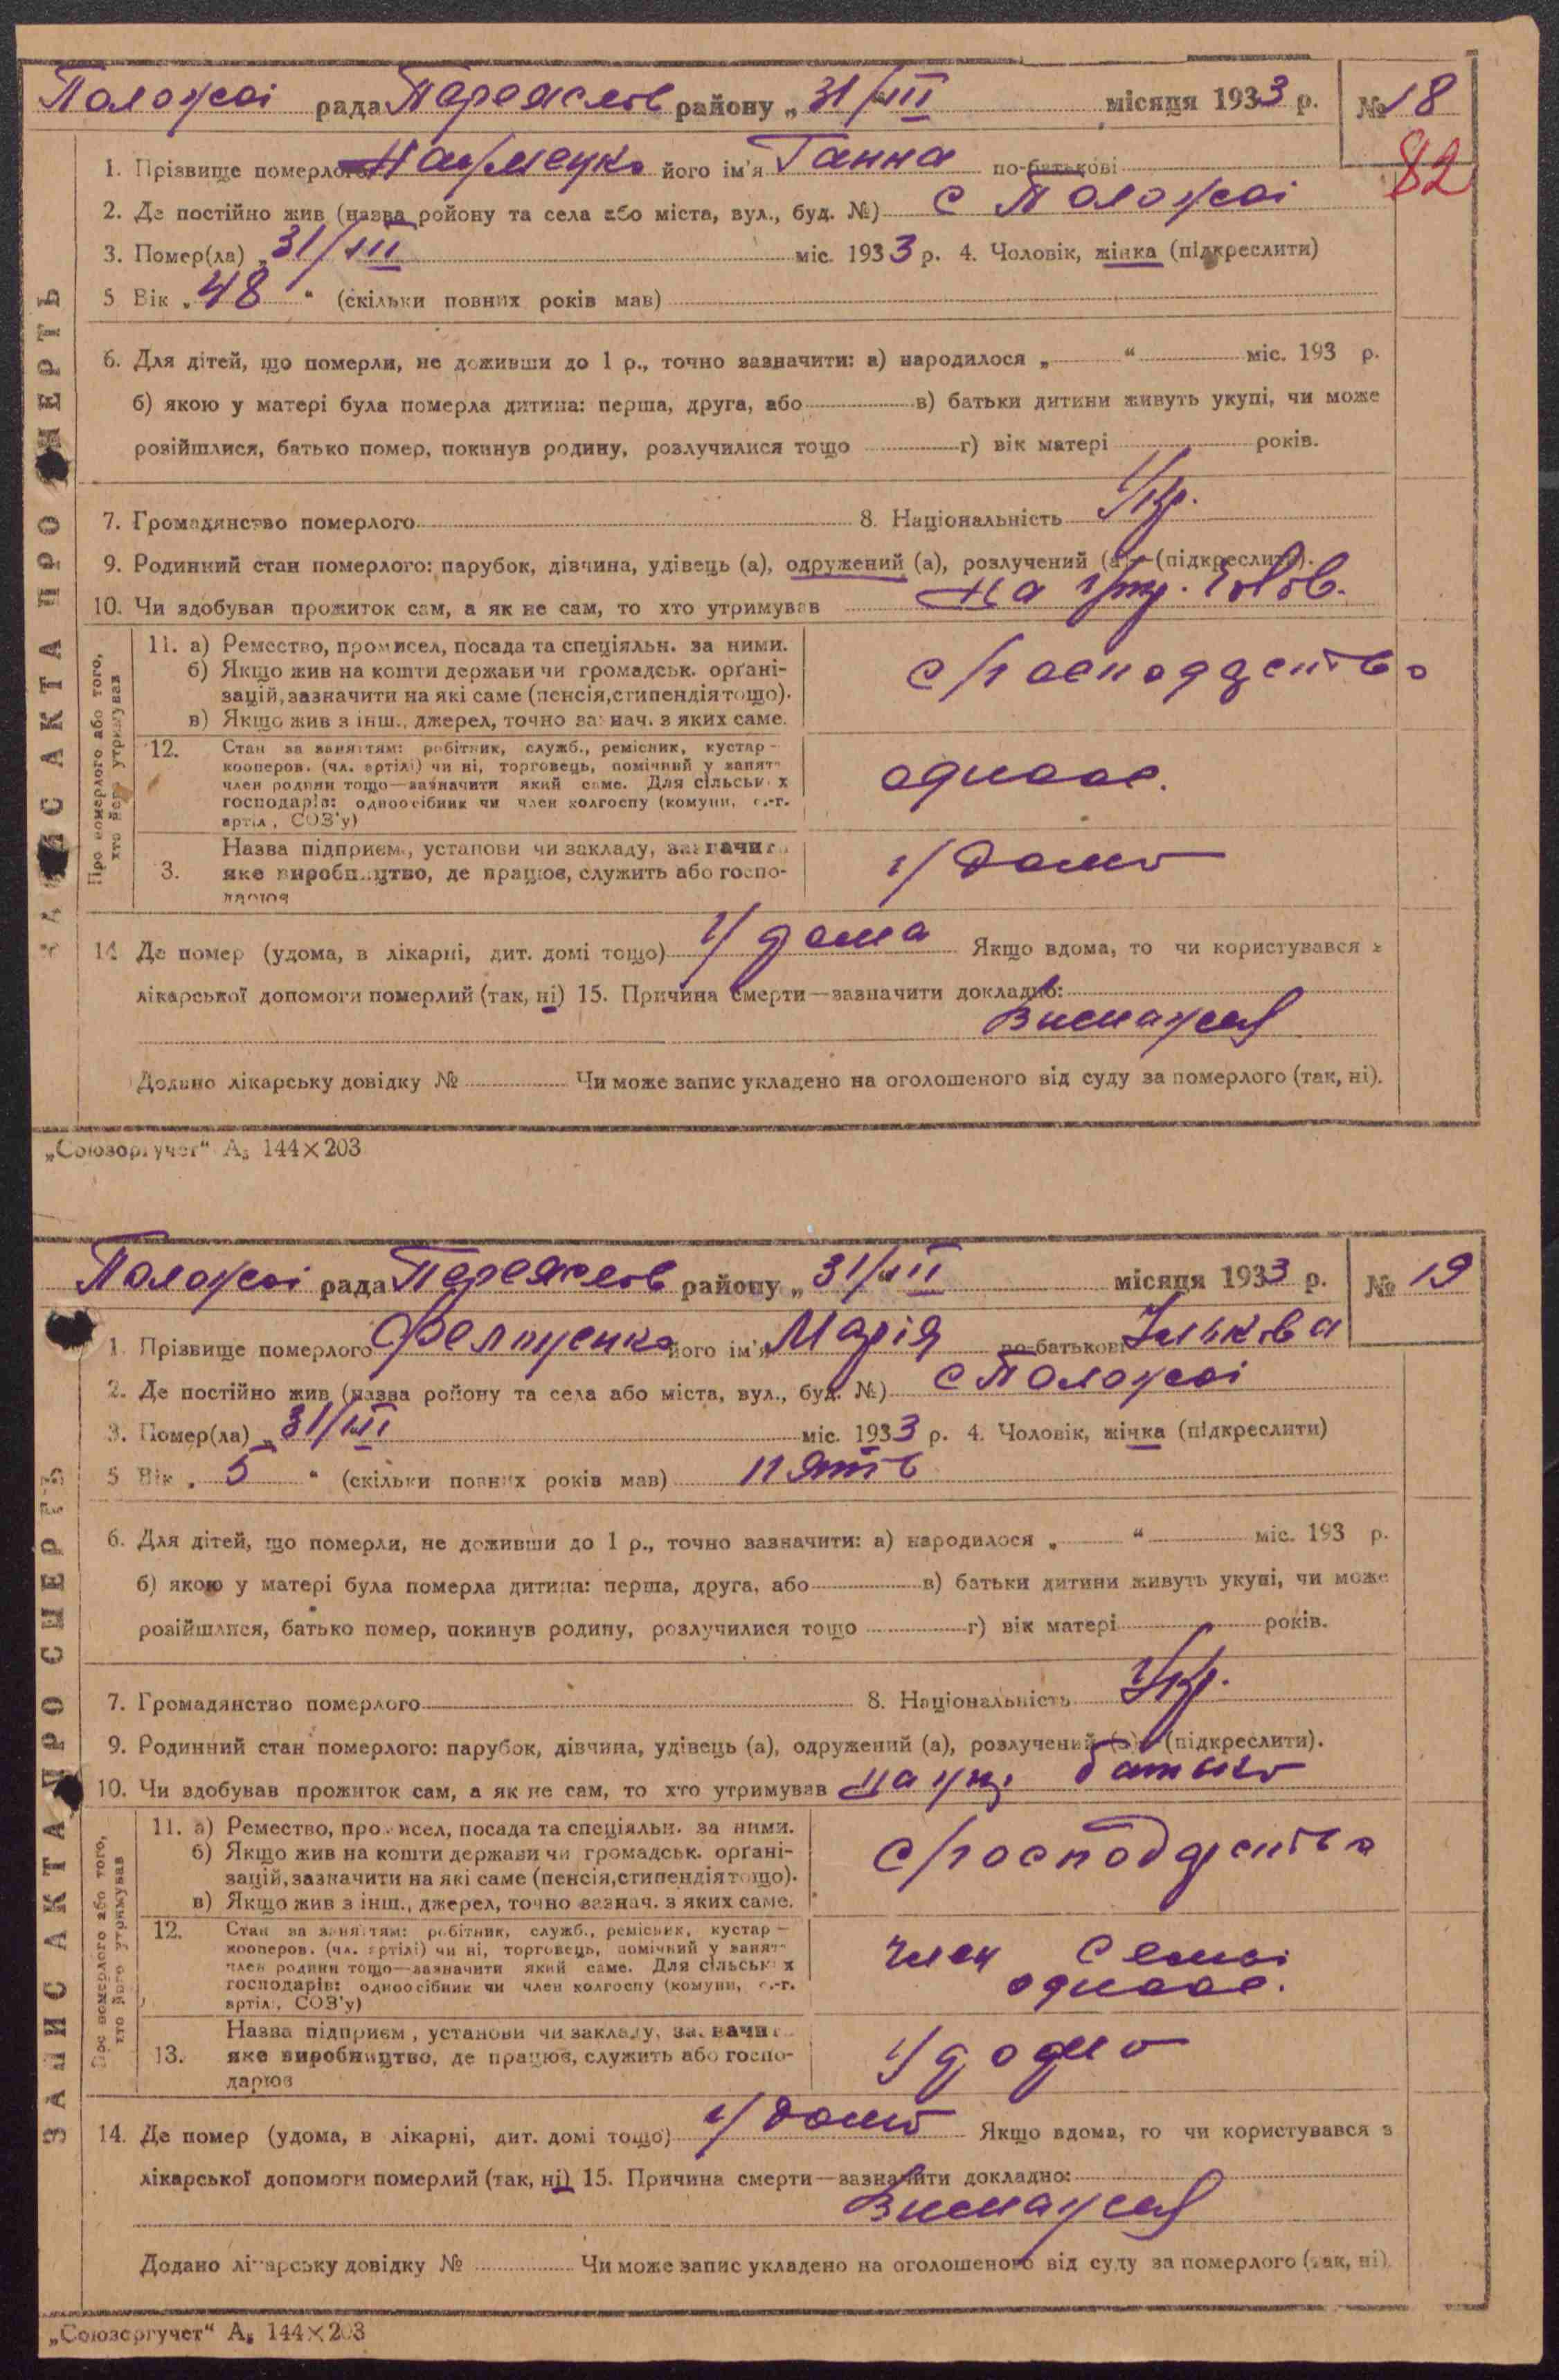 Положаї рада Переяслов району „ 31/III місяця 1933 р. № 18
82
1. Прізвище померлого Науменко його ім'я Ганна по-батькові
2. Де постійно жив (назва ройону та села або міста, вул., буд. №) с Положаї
3. Помер(ла) „ 31/III міс. 1933 р. 4. Чоловік, жінка (підкреслити)
5 Вік „ 48 “ (скільки повних років мав)
6. Для дітей, що померли, не доживши до 1 р., точно зазначити: а) народилося „ “ міс. 193 р.
б) якою у матері була померла дитина: перша, друга, або в) батьки дитини живуть укупі, чи може
розійшлися, батько помер, покинув родину, розлучилися тощо г) вік матері років.
7. Громадянство померлого 8. Національність Укр.
9. Родинний стан померлого: парубок, дівчина, удівець (а), одружений (а), розлучений (а) (підкреслити).
10. Чи здобував прожиток сам, а як не сам, то хто утримував на утр.
ЗАПИС АКТА ПРО СМЕРТЬ
Про померлого або того, хто його утримував
11. а) Ремество, промисел, посада та спеціяльн. за ними.
б) Якщо жив на кошти держави чи громадськ. орґані-
зацій, зазначити на які саме (пенсія, стипендія тощо).
в) Якщо жив з інш., джерел, точно зазнач. з яких саме.
с/господарство
12. Стан за заняттям: робітник, служб., ремісник, кустар-
кооперов. (чл. артілі) чи ні, торговець, помічний у занят
член родини тощо—зазначити який саме. Для сільських
господарів: одноосібник чи член колгоспу (комуни, с.-г.
артіл, СОЗ'у)
одноос.
Назва підприєм., установи чи закладу, зазначит
3. яке виробництво, де працює, служить або госпо-
дарює
у дома
14 Де помер (удома, в лікарні, дит. домі тощо) у дома Якщо вдома, то чи користувався з
лікарської допомоги померлий (так, ні) 15. Причина смерти—зазначити докладно:
виснажен
Додано лікарську довідку № Чи може запис укладено на оголошеного від суду за померлого (так, ні).
„Союзоргучет“ А5 144×203
Положаї рада Переяслов району „ 31/III місяця 1933 р. № 19
1. Прізвище померлого його ім'я Марія по-батькові Ількова
2. Де постійно жив (назва ройону та села або міста, вул., буд. №) с Положаї
3. Помер(ла) „ 31/III міс. 1933 р. 4. Чоловік, жінка (підкреслити)
5 Вік „ 5 “ (скільки повних років мав) пять
6. Для дітей, що померли, не доживши до 1 р., точно зазначити: а) народилося „ “ міс. 193 р.
б) якою у матері була померла дитина: перша, друга, або в) батьки дитини живуть укупі, чи може
розійшлися, батько помер, покинув родину, розлучилися тощо г) вік матері років.
7. Громадянство померлого 8. Національність Укр.
9. Родинний стан померлого: парубок, дівчина, удівець (а), одружений (а), розлучений (а) (підкреслити).
10. Чи здобував прожиток сам, а як не сам, то хто утримував на батько
ЗАПИС АКТА ПРО СМЕРТЬ
Про померлого або того, хто його утримував
11. а) Ремество, промисел, посада та спеціяльн. за ними.
б) Якщо жив на кошти держави чи громадськ. орґані-
зацій, зазначити на які саме (пенсія, стипендія тощо).
в) Якщо жив з інш., джерел, точно зазнач. з яких саме.
с/господарство
12. Стан за заняттям: робітник, служб., ремісник, кустар—
кооперов. (чл. артілі) чи ні, торговець, помічний у занят
член родини тощо—зазначити який саме. Для сільських
господарів: одноосібник чи член колгоспу (комуни, с.-г.
артіл, СОЗ'у)
член семьї
одноос.
Назва підприєм, установи чи закладу, зазначит
13. яке виробництво, де працює, служить або госпо-
дарює
14. Де помер (удома, в лікарні, дит. домі тощо) у дома Якщо вдома, то чи користувався з
лікарської допомоги померлий (так, ні) 15. Причина смерти—зазначити докладно:
виснажен
Додано лікарську довідку № Чи може запис укладено на оголошеного від суду за померлого (так, ні)
„Союзоргучет“ А5 144×203